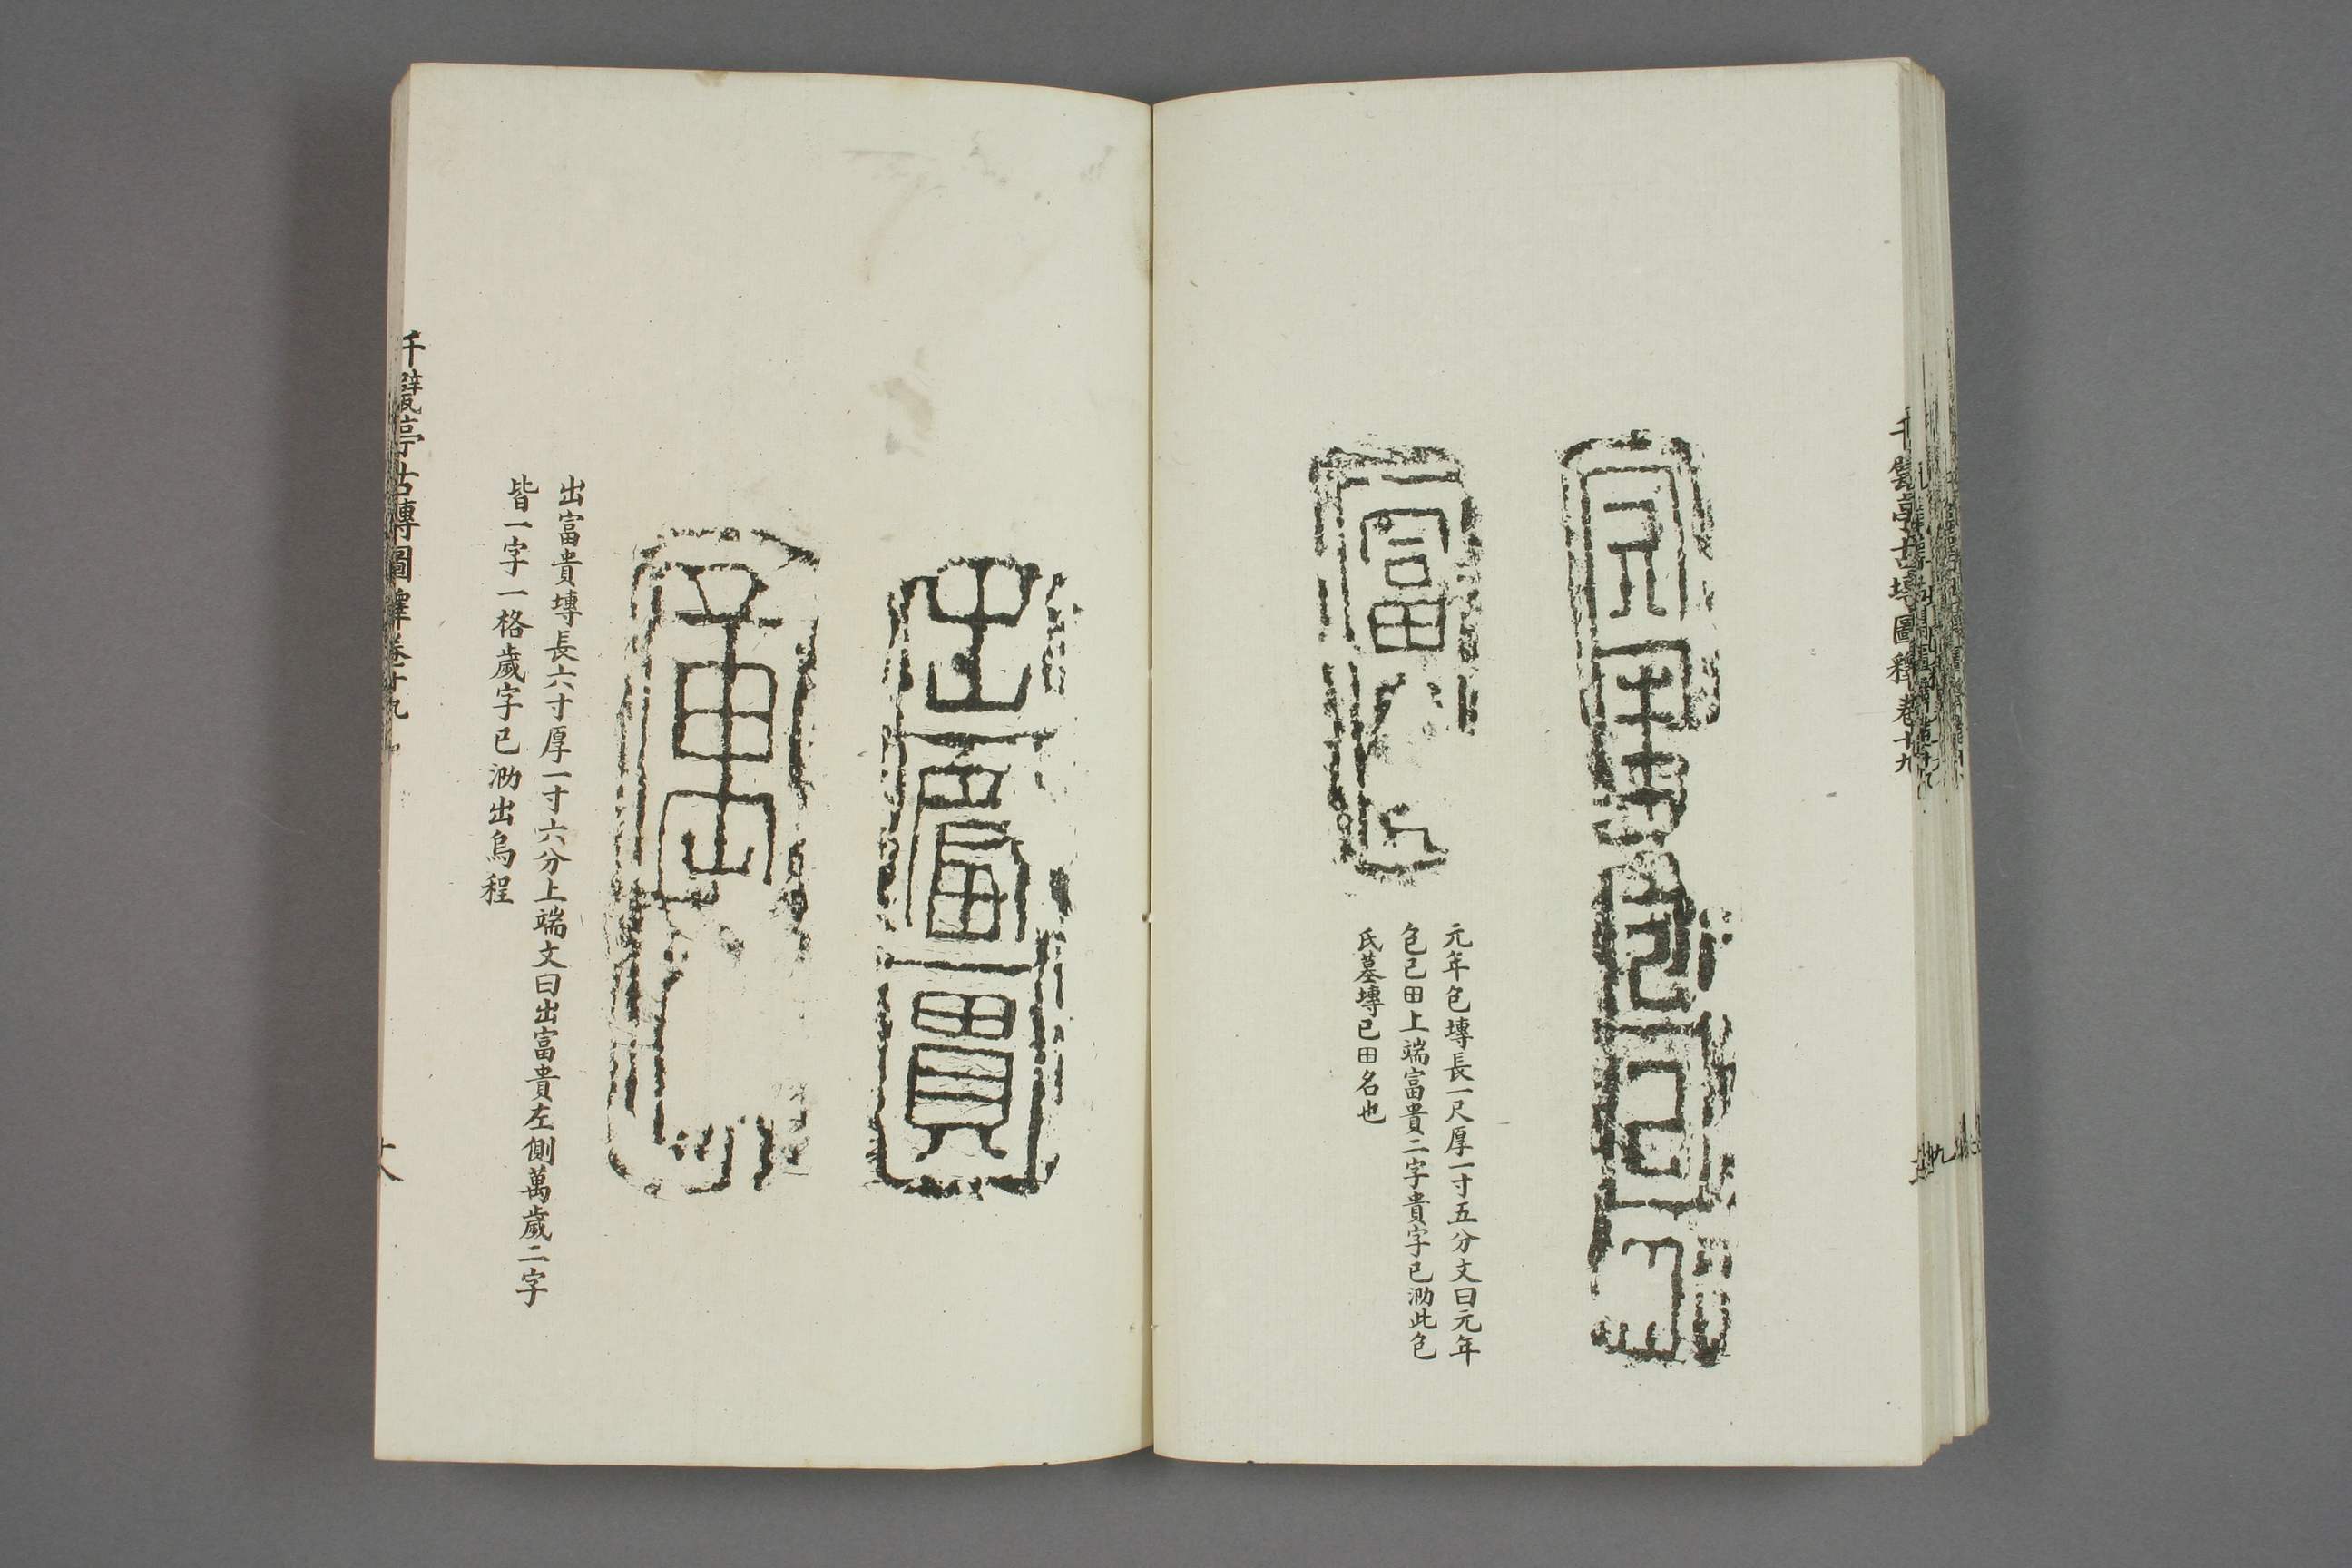 千甓亭古塼圖釋卷十九
元年包
富
元年包塼長一尺厚一寸五分文曰元年
包已田上端富貴二字貴字已泐此包
氏墓塼已田名也
出富貴
萬
出富貴塼長六寸厚一寸六分上端文曰出富貴左側萬歲二字
皆一字一格歲字已泐出烏程
千甓亭古塼圖釋卷十九